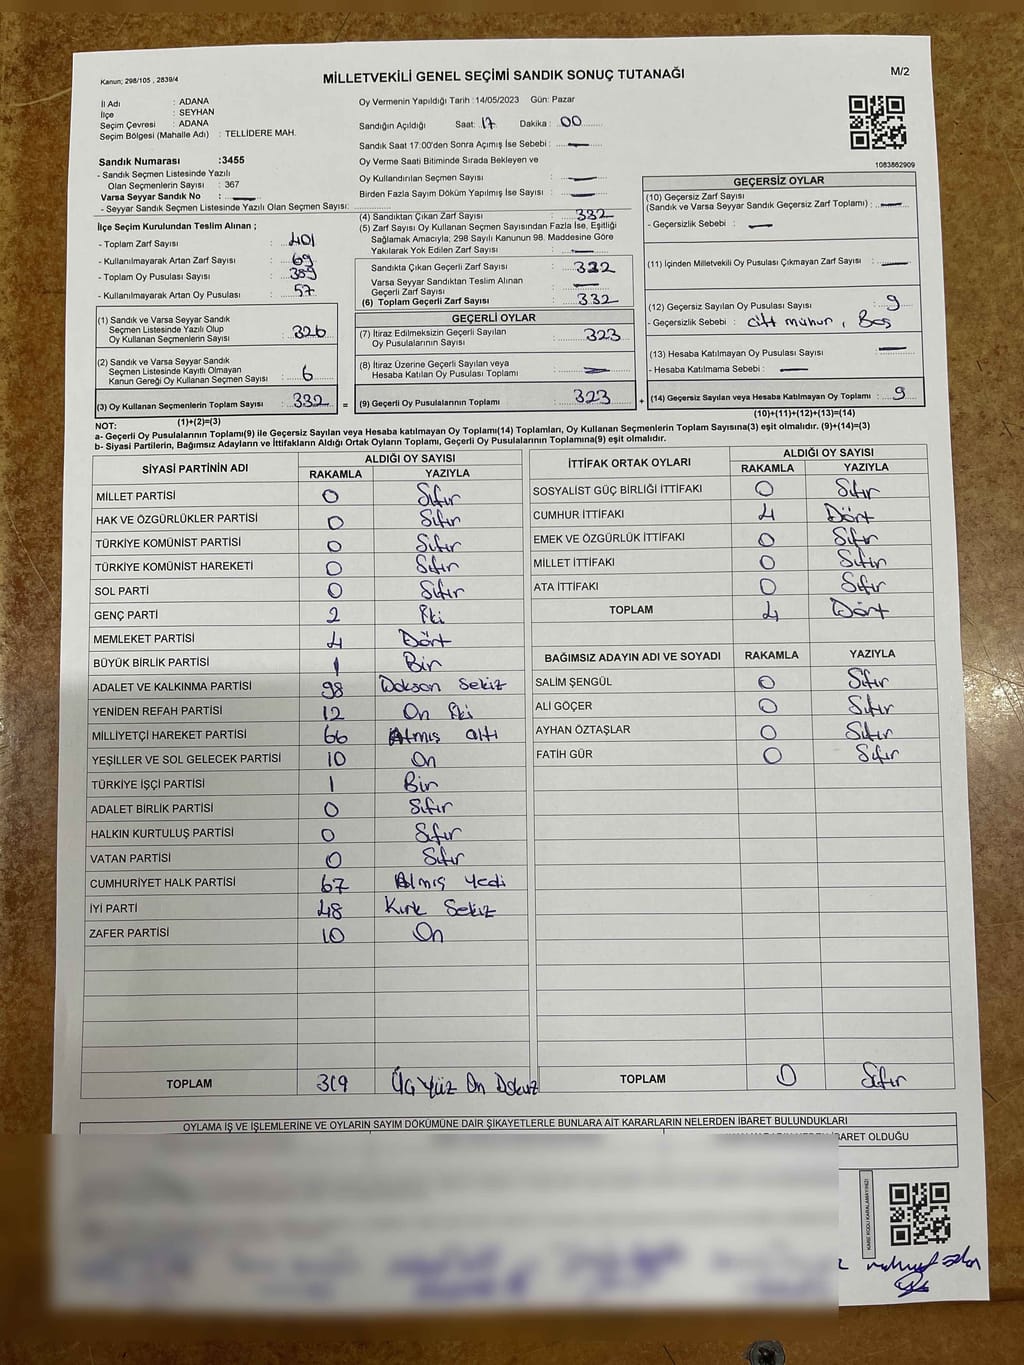 Kanun; 298/105 , 2839/4
MİLLETVEKİLİ GENEL SEÇİMİ SANDIK SONUÇ TUTANAĞI
M/2
İl Adı : ADANA
İlçe : SEYHAN
Seçim Çevresi : ADANA
Seçim Bölgesi (Mahalle Adı) : TELLİDERE MAH.
Sandık Numarası :3455
- Sandık Seçmen Listesinde Yazılı
Olan Seçmenlerin Sayısı : 367
Varsa Seyyar Sandık No : —
- Seyyar Sandık Seçmen Listesinde Yazılı Olan Seçmen Sayısı:
Oy Vermenin Yapıldığı Tarih :14/05/2023 Gün: Pazar
Sandığın Açıldığı Saat: 17 Dakika : 00
Sandık Saat 17:00'den Sonra Açımış İse Sebebi : —
Oy Verme Saati Bitiminde Sırada Bekleyen ve
Oy Kullandırılan Seçmen Sayısı : —
Birden Fazla Sayım Döküm Yapılmış İse Sayısı : —
1083862909
İlçe Seçim Kurulundan Teslim Alınan ;
- Toplam Zarf Sayısı : 401
- Kullanılmayarak Artan Zarf Sayısı : 69
- Toplam Oy Pusulası Sayısı : 389
- Kullanılmayarak Artan Oy Pusulası : 57
(1) Sandık ve Varsa Seyyar Sandık
Seçmen Listesinde Yazılı Olup
Oy Kullanan Seçmenlerin Sayısı : 326
(2) Sandık ve Varsa Seyyar Sandık
Seçmen Listesinde Kayıtlı Olmayan
Kanun Gereği Oy Kullanan Seçmen Sayısı : 6
(3) Oy Kullanan Seçmenlerin Toplam Sayısı : 332 =
(1)+(2)=(3)
(4) Sandıktan Çıkan Zarf Sayısı : 332
(5) Zarf Sayısı Oy Kullanan Seçmen Sayısından Fazla İse, Eşitliği
Sağlamak Amacıyla; 298 Sayılı Kanunun 98. Maddesine Göre
Yakılarak Yok Edilen Zarf Sayısı : —
Sandıkta Çıkan Geçerli Zarf Sayısı : 332
Varsa Seyyar Sandıktan Teslim Alınan
Geçerli Zarf Sayısı : —
(6) Toplam Geçerli Zarf Sayısı : 332
GEÇERLİ OYLAR
(7) İtiraz Edilmeksizin Geçerli Sayılan
Oy Pusulalarının Sayısı : 323
(8) İtiraz Üzerine Geçerli Sayılan veya
Hesaba Katılan Oy Pusulası Toplamı : —
(9) Geçerli Oy Pusulalarının Toplamı : 323 +
GEÇERSİZ OYLAR
(10) Geçersiz Zarf Sayısı
(Sandık ve Varsa Seyyar Sandık Geçersiz Zarf Toplamı) : —
- Geçersizlik Sebebi : —
(11) İçinden Milletvekili Oy Pusulası Çıkmayan Zarf Sayısı : —
(12) Geçersiz Sayılan Oy Pusulası Sayısı : 9
- Geçersizlik Sebebi : Çift mühür, Boş
(13) Hesaba Katılmayan Oy Pusulası Sayısı : —
- Hesaba Katılmama Sebebi : —
(14) Geçersiz Sayılan veya Hesaba Katılmayan Oy Toplamı : 9
(10)+(11)+(12)+(13)=(14)
NOT:
a- Geçerli Oy Pusulalarının Toplamı(9) ile Geçersiz Sayılan veya Hesaba katılmayan Oy Toplamı(14) Toplamları, Oy Kullanan Seçmenlerin Toplam Sayısına(3) eşit olmalıdır. (9)+(14)=(3)
b- Siyasi Partilerin, Bağımsız Adayların ve İttifakların Aldığı Ortak Oyların Toplamı, Geçerli Oy Pusulalarının Toplamına(9) eşit olmalıdır.
SİYASİ PARTİNİN ADI ALDIĞI OY SAYISI
RAKAMLA YAZIYLA
MİLLET PARTİSİ 0 Sıfır
HAK VE ÖZGÜRLÜKLER PARTİSİ 0 Sıfır
TÜRKİYE KOMÜNİST PARTİSİ 0 Sıfır
TÜRKİYE KOMÜNİST HAREKETİ 0 Sıfır
SOL PARTİ 0 Sıfır
GENÇ PARTİ 2 İki
MEMLEKET PARTİSİ 4 Dört
BÜYÜK BİRLİK PARTİSİ 1 Bir
ADALET VE KALKINMA PARTİSİ 98 Doksan Sekiz
YENİDEN REFAH PARTİSİ 12 On İki
MİLLİYETÇİ HAREKET PARTİSİ 66 Atmış altı
YEŞİLLER VE SOL GELECEK PARTİSİ 10 On
TÜRKİYE İŞÇİ PARTİSİ 1 Bir
ADALET BİRLİK PARTİSİ 0 Sıfır
HALKIN KURTULUŞ PARTİSİ 0 Sıfır
VATAN PARTİSİ 0 Sıfır
CUMHURİYET HALK PARTİSİ 67 Atmış Yedi
İYİ PARTİ 48 Kırk Sekiz
ZAFER PARTİSİ 10 On
TOPLAM 319 Üç Yüz On Dokuz
İTTİFAK ORTAK OYLARI ALDIĞI OY SAYISI
RAKAMLA YAZIYLA
SOSYALİST GÜÇ BİRLİĞİ İTTİFAKI 0 Sıfır
CUMHUR İTTİFAKI 4 Dört
EMEK VE ÖZGÜRLÜK İTTİFAKI 0 Sıfır
MİLLET İTTİFAKI 0 Sıfır
ATA İTTİFAKI 0 Sıfır
TOPLAM 4 Dört
BAĞIMSIZ ADAYIN ADI VE SOYADI RAKAMLA YAZIYLA
SALİM ŞENGÜL 0 Sıfır
ALİ GÖÇER 0 Sıfır
AYHAN ÖZTAŞLAR 0 Sıfır
FATİH GÜR 0 Sıfır
TOPLAM 0 Sıfır
OYLAMA İŞ VE İŞLEMLERİNE VE OYLARIN SAYIM DÖKÜMÜNE DAİR ŞİKAYETLERLE BUNLARA AİT KARARLARIN NELERDEN İBARET BULUNDUKLARI
İBARET OLDUĞU
KARE KODU KARALAMAYINIZ!